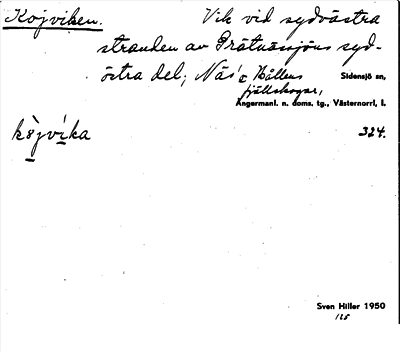 Kojviken. Vik vid sydvästra
stranden av Prätnässjöns syd-
östra del; Näs' & Hållens Sidensjö sn,
fjällskogar,
Ångermanl. n. doms. tg., Västernorrl, l.
kòjvika 324.
Sven Hiller 1950
125